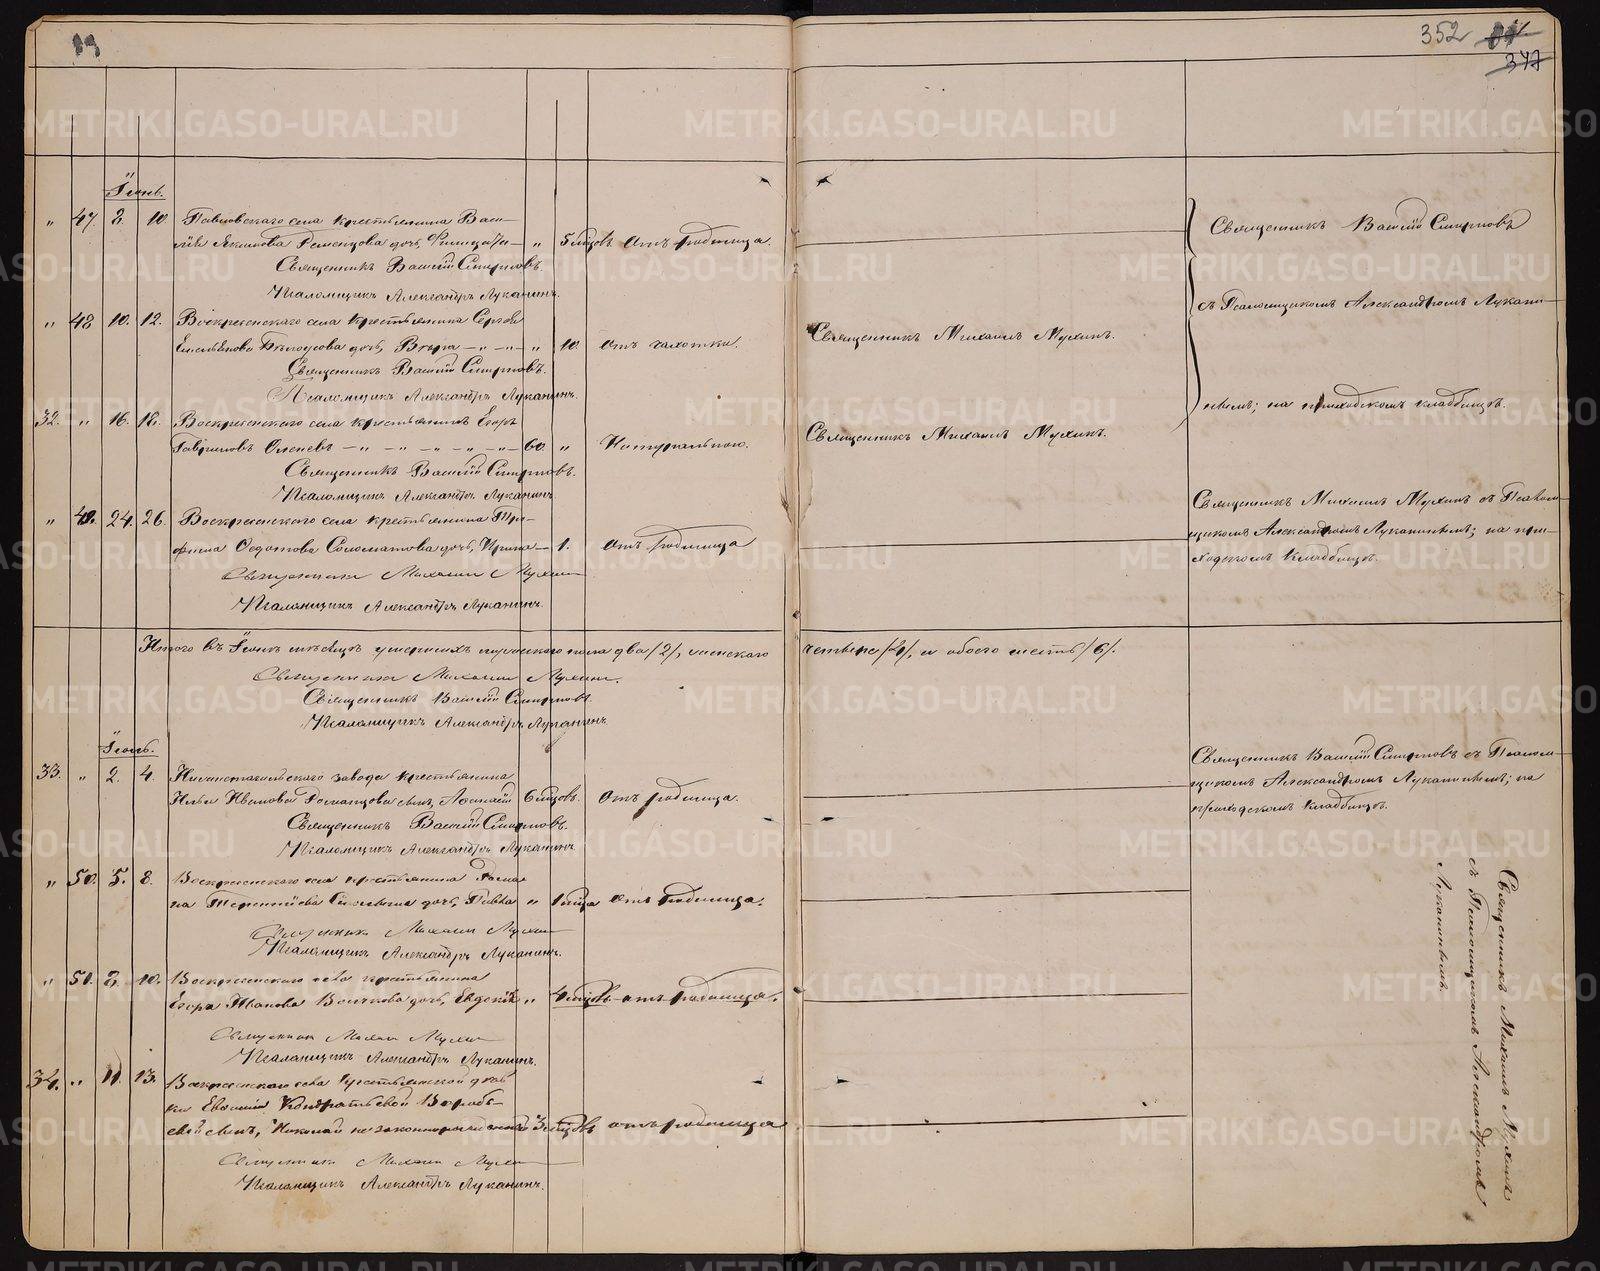 352
347
Іюнь.
" 47 8. 10 Павловскаго села крестьянина Васи-
лія Якимова дочь,
" 5 мцовъ Отъ родимца.
Священникъ Василій Смирновъ.
Псаломщикъ Александръ Луканинъ.
Священникъ Василій Смирновъ
съ Псаломщикомъ Александромъ Лукани-
нымъ; на приходскомъ кладбищѣ.
" 48 10. 12. Воскресенскаго села крестьянина Сергѣя
Емельянова Бѣлоусова дочь, Вѣра — " — " — " 10. отъ чахотки.
Священникъ Михаилъ Мухинъ.
Священникъ Василій Смирновъ.
Псаломщикъ Александръ Луканинъ.
32. " 16. 18. Воскресенскаго села крестьянинъ Егоръ
Гавриловъ Оленевъ — " — " — " — " — " — 60. " Натуральною.
Священникъ Михаилъ Мухинъ.
Священникъ Василій Смирновъ.
Псаломщикъ Александръ Луканинъ.
" 49. 24. 26. Воскресенскаго села крестьянина Три-
фила Федотова Соломатова дочь, Ирина — 1. Отъ родимца
Священникъ Михаилъ Мухинъ
Псаломщикъ Александръ Луканинъ.
Священникъ Михаилъ Мухинъ съ Псалом-
щикомъ Александромъ Луканинымъ; на при-
ходскомъ кладбищѣ.
Итого въ Іюнѣ мѣсяцѣ умершихъ мужескаго пола два /2/, женскаго четыре /4/, и обоего шесть /6/.
Священникъ Михаилъ Мухинъ.
Священникъ Василій Смирновъ.
Псаломщикъ Александръ Луканинъ.
Іюль.
33. " 2. 4. Нижнетагильскаго завода крестьянина
Ильи Иванова Романцова сынъ, Аѳанасій 6 мцовъ. Отъ родимца.
Священникъ Василій Смирновъ.
Псаломщикъ Александръ Луканинъ
Священникъ Василій Смирновъ съ Псалом-
щикомъ Александромъ Луканинымъ; на
приходскомъ кладбищѣ.
" 50. 5. 8. Воскресенскаго села крестьянина Рома-
на Терентіева дочь, Павла " 1 мца отъ родимца.
Священникъ Михаилъ Мухинъ
Псаломщикъ Александръ Луканинъ.
" 51. 8. 10. Воскресенскаго села крестьянина
Егора Иванова дочь, Евдокія " 4 мцовъ отъ родимца.
Священникъ Михаилъ Мухинъ
Псаломщикъ Александръ Луканинъ.
34. " 11. 13. Воскресенскаго села крестьянской дѣв-
ки Кондратьевой Воробь-
евой сынъ, Николай незаконнорожденный 3 мцовъ отъ родимца
Священникъ Михаилъ Мухинъ
Псаломщикъ Александръ Луканинъ.
Священникъ Михаилъ Мухинъ
съ Псаломщикомъ Александромъ
Луканинымъ.
METRIKI.GASO-URAL.RU